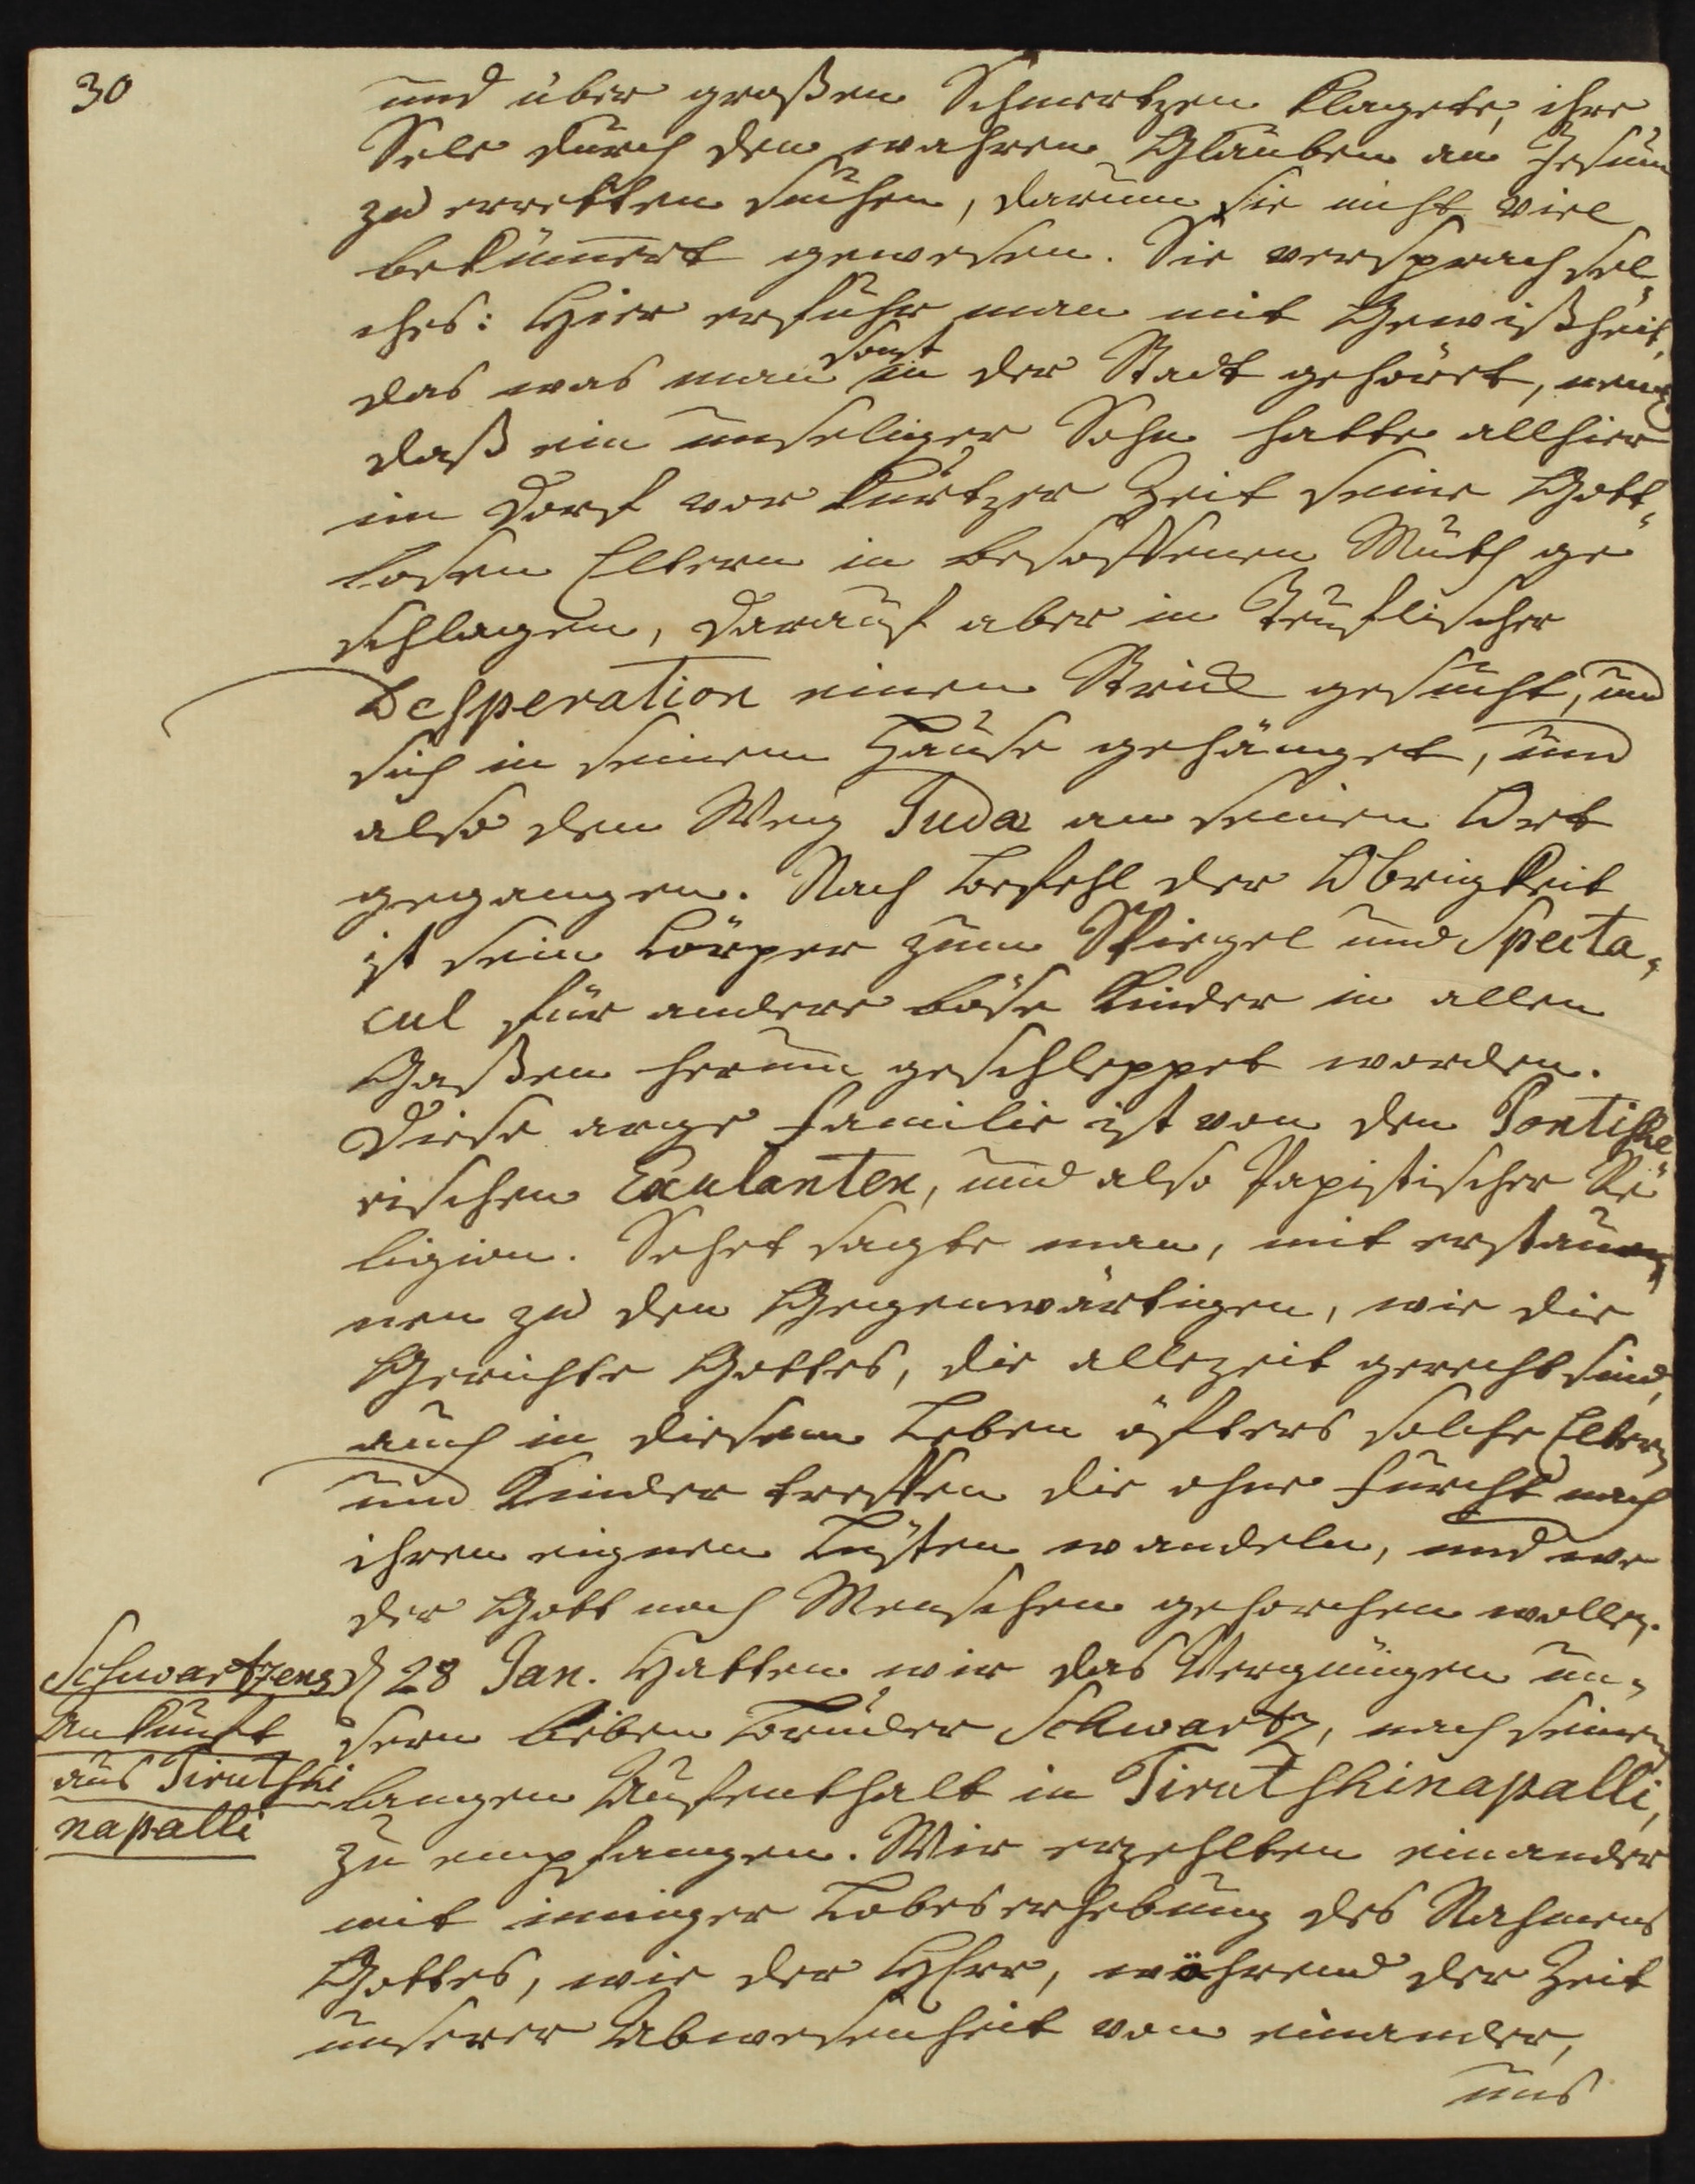 30
und über großen Schmertzen klagete, ihre
Sele durch den wahren Glauben an Jesum
zu erretten suchen, darum sie nicht viel
bekümmert gewesen. Sie versprach sol„
ches: Hier erfuhr man mit Gewißheit,
das was man sonst in der Stadt gehöret, neml.
daß ein unseliger Sohn hatte allhier
im Dorf vor kurtzer Zeit seine Gott„
losen Eltern in besoffenen Muth ge„
schlagen, darauf aber in Teuflischer
Desperation einen Strick gesucht, und
sich in seinem Hause gehänget, und
also den Weg Judæ an seinen Ort
gegangen. Nach Befehl der Obrigkeit
ist sein Cörper zum Spiegel und Specta„
cul für andere böse Kinder in allen
Gaßen herum geschleppet worden.
Diese arge Familie ist von den Pontische„
rischen Exulanten, und also Papistischer Re„
ligion. Sehet sagte man, mit erstau„
nen zu den Gegenwärtigen, wie die
Gerichte Gottes, die allezeit gerecht sind,
auch in diesem Leben öfters solche Eltern
und Kinder treffen die ohne Furcht nach
ihren eignen Lüsten wandeln, und we
der Gott noch Menschen gehorchen wollen.
Schwartzens
Ankunft
aus Tirutshi
napalli
d 28 Jan. Hatten wir das Vergnügen un„
sern lieben Bruder Schwartz, nach seinem
langen Aufenthalt in Tirutshinapalli,
zu empfangen. Wir erzehlten einander
mit inniger Lobeserhebung des Nahmens
Gottes, wie der HErr, während der Zeit
unserer Abwesenheit von einander,
uns